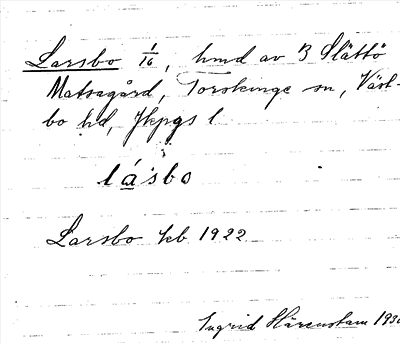 Larsbo 1/16, hmd av 3 Slättö
Matsagård, Torskinge sn, Väst-
bo hd, Jkpgs l
lásbo
Larsbo kb 1922
Ingrid Härenstam 193